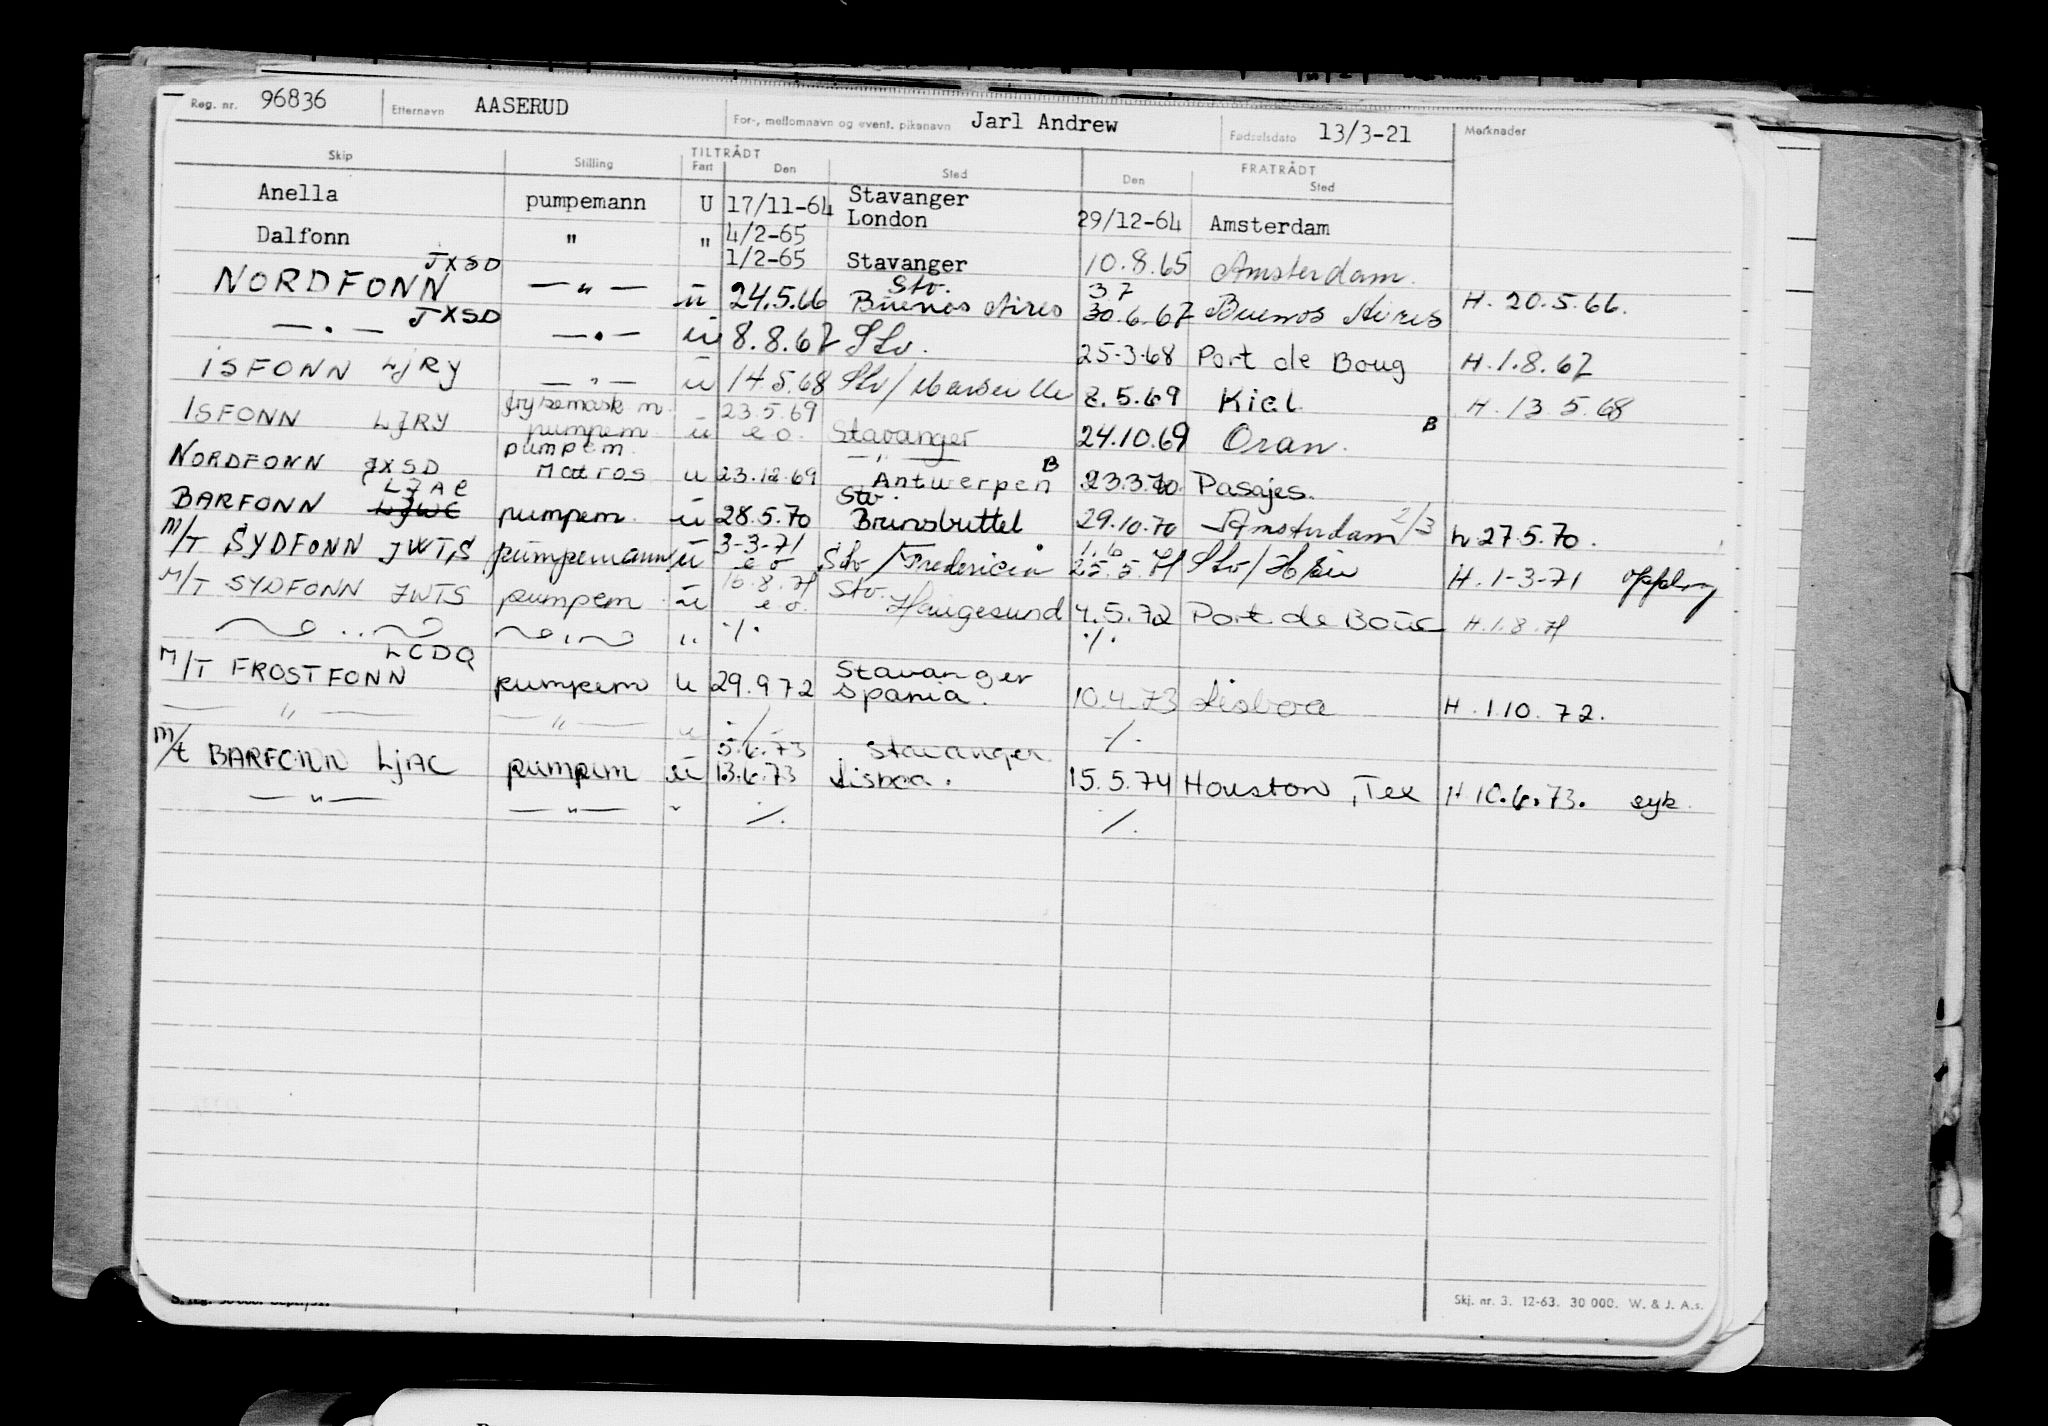 Reg. nr. 96836 Etternavn AASERUD For-, mellomnavn og event. pikenavn Jarl Andrew Fødselsdato 13/3-21 Merknader
TILTRÅDT FRATRÅDT
Skip Stilling Fart Den Sted Den Sted
Anella pumpemann U 17/11-64 Stavanger London 29/12-64 Amsterdam
Dalfonn " " 4/2-65
1/2-65 Stavanger 10.8.65 Amsterdam.
NORDFONN JXSD — " — ü 24.5.66 Stv. Buenos Aires 3 7 30.6.67 Buenos Aires H. 20.5.66.
— " — JXSD — " — ü 8.8.67 Stv. 25-3-68 Port de Boug H.1.8.67
ISFONN LJRY — " — ü 14.5.68 Stv/Marseille 8.5.69 Kiel H. 13.5.68
ISFONN LJRY pumpem. u 23.5.69 e o. Stavanger 24.10.69 Oran. B
NORDFONN JXSD pumpem. Matros u 23.12.69 — " — Antwerpen B 23.3.70. Pasajes.
BARFONN LJAC pumpem. ü 28.5.70 Stv. Brunsbuttel 29.10.70 Amsterdam 2/3 h 27.5.70.
M/T SYDFONN JWTS pumpemann ü 3-3-71 e o Stv/Fredericia 1.6 25.5.71 Stv/ H. 1-3-71
M/T SYDFONN JWTS pumpem. ü 16.8.71 e o. Stv. Haugesund 4.5.72 Port de Bouc H.1.8.71
" " " ·/· ·/·
M/T FROSTFONN LCDQ pumpem u 29.9.72 Stavanger Spania. 10.4.73 Lisboa H. 1.10.72.
— " — — " — u ·/· ·/·
M/t BARFONN LJAC pumpem ü 5.6.73 13.6.73 Stavanger Lisboa. 15.5.74 Houston, Tex H 10.6.73. syk.
— " — — " — " ·/. ·/.
Skj. nr. 3. 12-63. 30 000. W. & J. A.s.